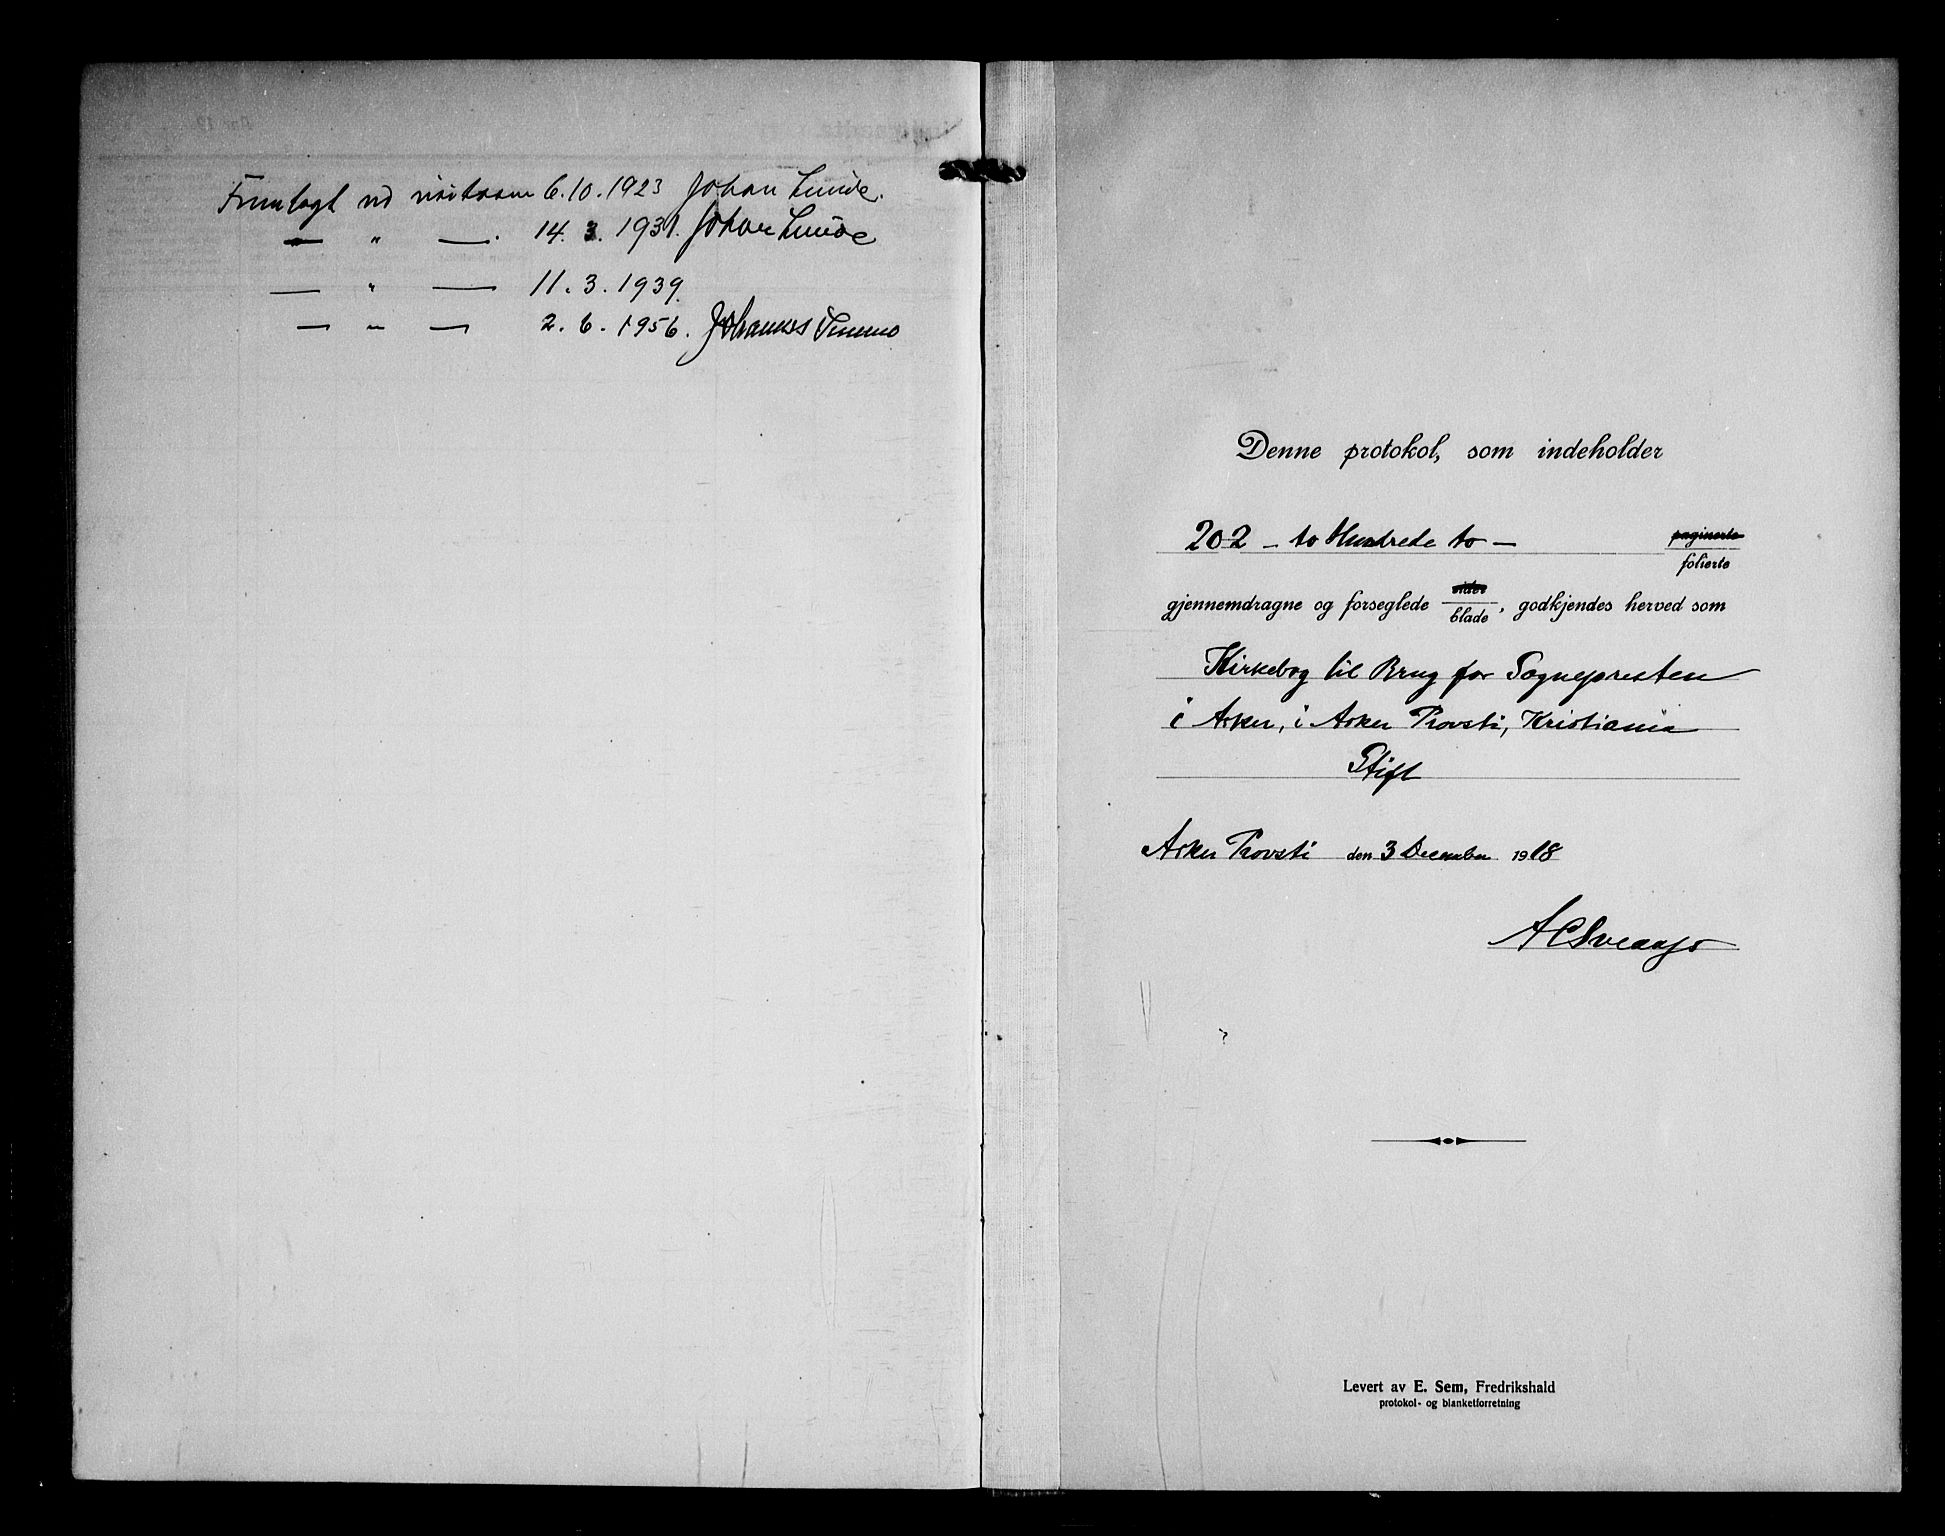 Fremlagt ved visitasen 6.10.1923 Johan Lunde.
— " — 14. 3. 1931. Johan Lunde
— " — 11. 3. 1939.
— " — 2. 6. 1956. Johannes Smemo
Denne protokol, som indeholder
202 – to Hundrede to – paginerte
folierte
gjennemdragne og forseglede sider
blade, godkjendes herved som
Kirkebog til Brug for Sognepresten
i Asker, i Asker Provsti, Kristiania
Stift
Asker Provsti den 3 December 1918
Levert av E. Sem, Fredrikshald
protokol- og blanketforretning